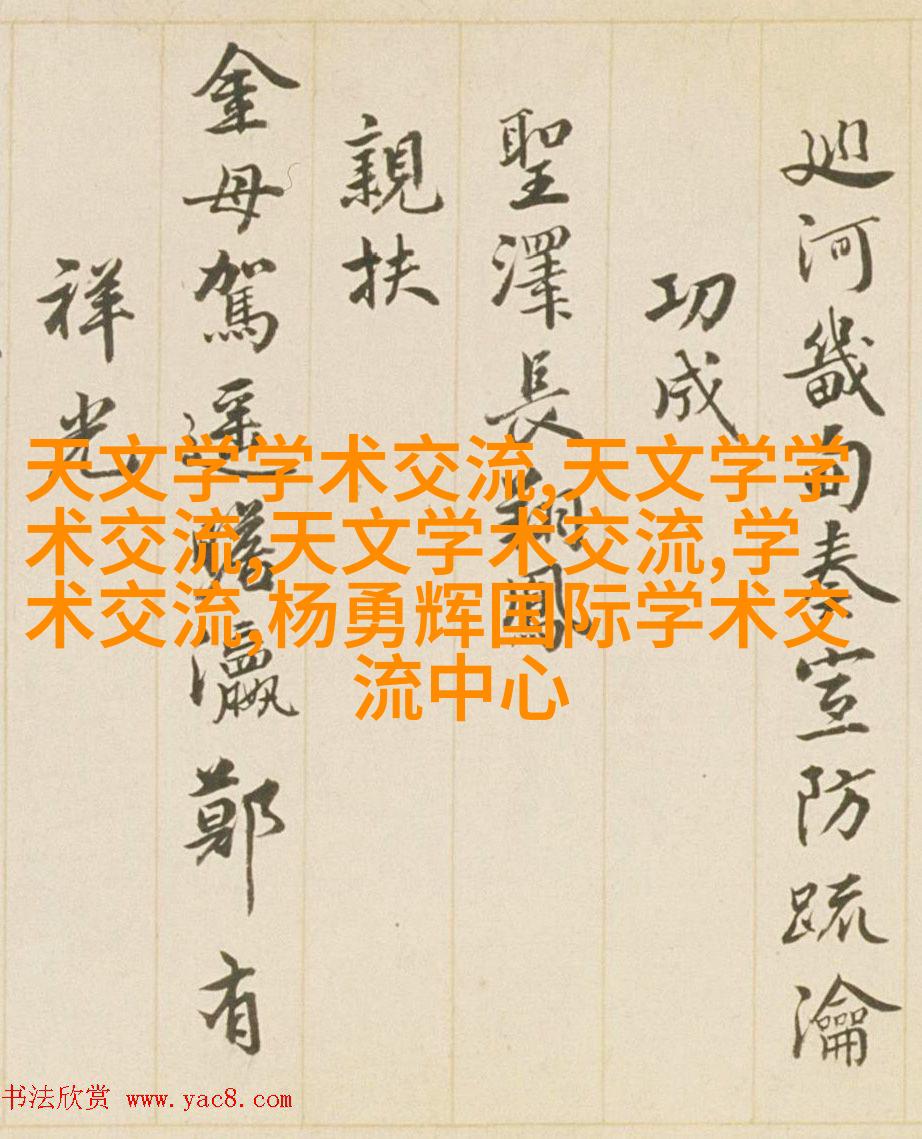 廵河畿甸奏宣防疏瀹
功成
聖澤長翔鳳
親扶
金母駕遥瞻瀛鄭有
祥光
天文学学术交流,天文学学
术交流,天文学术交流,学
术交流,杨勇辉国际学术交
流中心
书法欣赏 www.yac8.com